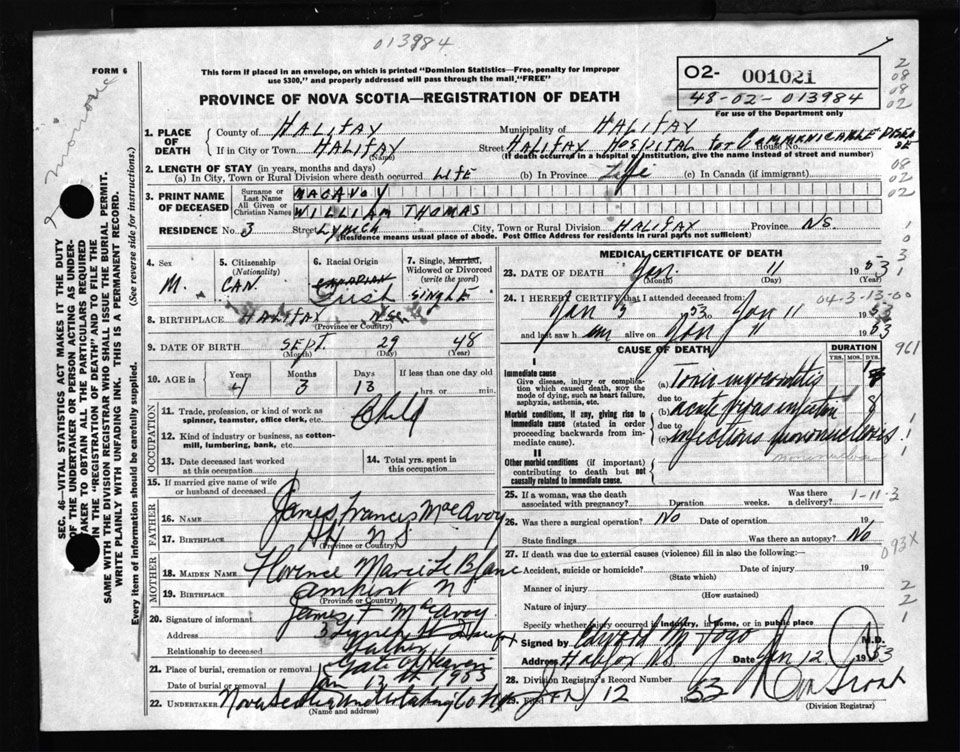 013984
FORM 6
This form if placed in an envelope, on which is printed "Dominion Statistics—Free, penalty for improper
use $300," and properly addressed will pass through the mail, "FREE"
PROVINCE OF NOVA SCOTIA—REGISTRATION OF DEATH
O2- 001021
48-02-013984
For use of the Department only
2
08
08
02
1. PLACE OF DEATH
County of HALIFAX Municipality of HALIFAX
If in City or Town HALIFAX Street HALIFAX HOSPITAL FOR COMMUNICABLE DISEASE House No.
(Name) (If death occurred in a hospital or institution, give the name instead of street and number)
2. LENGTH OF STAY (in years, months and days)
(a) In City, Town or Rural Division where death occurred LIFE (b) In Province Life (c) In Canada (if immigrant)
08
02
02
3. PRINT NAME OF DECEASED
Surname or Last Name MACAVOY
All Given or Christian Names WILLIAM THOMAS
RESIDENCE No. 3 Street LYNCH City, Town or Rural Division HALIFAX Province NS
(Residence means usual place of abode. Post Office Address for residents in rural parts not sufficient)
4. Sex M.
5. Citizenship (Nationality) CAN.
6. Racial Origin CANADIAN Irish
7. Single, Married, Widowed or Divorced (write the word) SINGLE
8. BIRTHPLACE HALIFAX N.S.
(Province or Country)
9. DATE OF BIRTH SEPT. 29 48
(Month) (Day) (Year)
10. AGE in Years Months Days If less than one day old
4 3 13 hrs. or min.
OCCUPATION
11. Trade, profession, or kind of work as spinner, teamster, office clerk, etc. Child
12. Kind of industry or business, as cotton-mill, lumbering, bank, etc.
13. Date deceased last worked at this occupation
14. Total yrs. spent in this occupation
15. If married give name of wife or husband of deceased
FATHER
16. NAME James Francis MacAvoy
17. BIRTHPLACE Hfx N S
(Province or Country)
MOTHER
18. MAIDEN NAME Florence Le Blanc
19. BIRTHPLACE Amherst N
(Province or Country)
20. Signature of informant James F MacAvoy
Address 3 Lynch St
Relationship to deceased Father
21. Place of burial, cremation or removal Gate of Heaven
Date of burial or removal Jan 13th 1953
22. UNDERTAKER Nova Scotia Undertaking Co
(Name and address)
MEDICAL CERTIFICATE OF DEATH
23. DATE OF DEATH Jan. 11 1953
(Month) (Day)
24. I HEREBY CERTIFY that I attended deceased from: 04-3-13-00
Jan 5 1953 to Jan 11 1953
and last saw him alive on Jan 11 1953
CAUSE OF DEATH
DURATION
YRS. MOS. DYS.
961
I
Immediate cause
Give disease, injury or complication which caused death, NOT the mode of dying, such as heart failure, asphyxia, asthenia, etc.
(a) Toxic myocarditis
due to
Morbid conditions, if any, giving rise to immediate cause (stated in order proceeding backwards from immediate cause).
(b) acute virus infection 8
due to
(c) infectious mononucleosis 8
II
Other morbid conditions (if important) contributing to death but not causally related to immediate cause.
25. If a woman, was the death associated with pregnancy? Duration weeks. Was there a delivery?
1-11-3
26. Was there a surgical operation? No Date of operation 19
State findings Was there an autopsy? No
093X
27. If death was due to external causes (violence) fill in also the following:—
Accident, suicide or homicide? Date of injury 19
(State which)
Manner of injury
(How sustained)
Nature of injury
Specify whether injury occurred in industry, in home, or in public place
2
2
1
Signed by Edward M. Fogo M.D.
Address Halifax N.S. Date Jan 12 1953
28. Division Registrar's Record Number
29. Filed Jan 12 1953
(Division Registrar)
SEC. 46—VITAL STATISTICS ACT MAKES IT THE DUTY
OF THE UNDERTAKER OR PERSON ACTING AS UNDER-
TAKER TO OBTAIN ALL THE PARTICULARS REQUIRED
IN THE "REGISTRATION OF DEATH" AND TO FILE THE
SAME WITH THE DIVISION REGISTRAR WHO SHALL ISSUE THE BURIAL PERMIT.
WRITE PLAINLY WITH UNFADING INK. THIS IS A PERMANENT RECORD.
Every item of information should be carefully supplied. (See reverse side for instructions.)